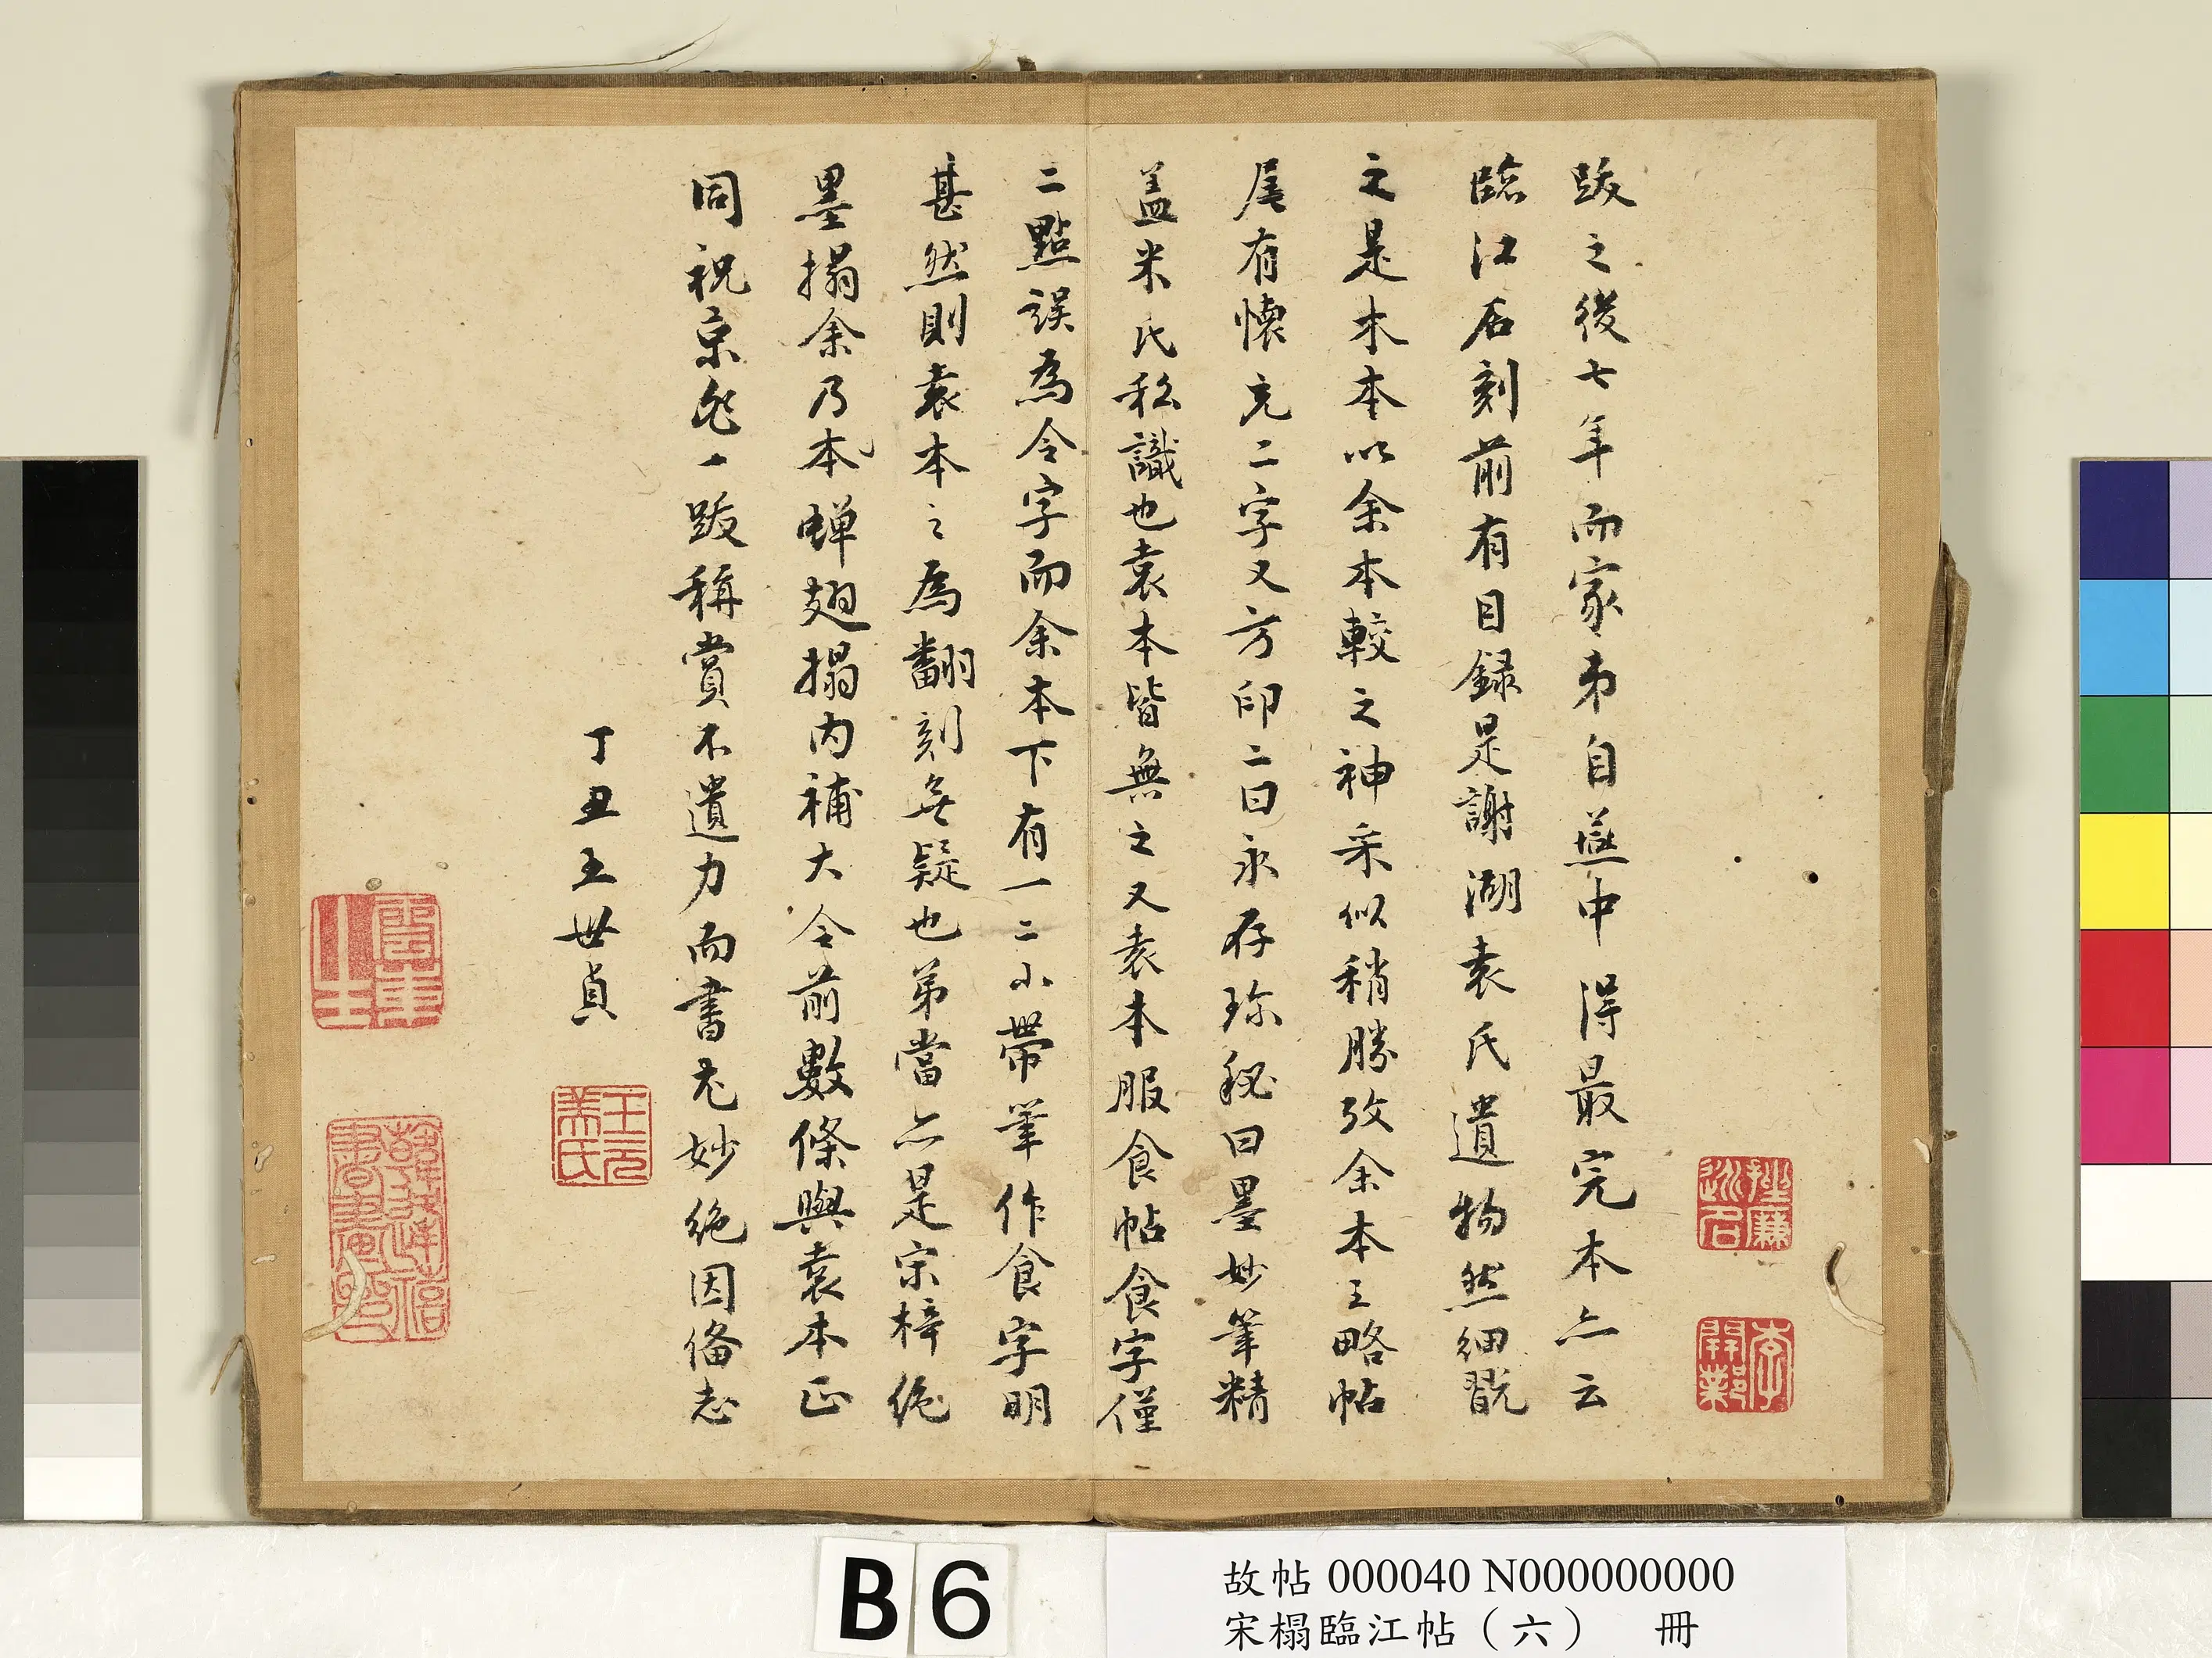 跋之後七年而家弟自燕中得最完本亦云
臨江石刻前有目錄是謝湖袁氏遺物然細翫
之是木本以余本較之神采似稍勝攷余本王略帖
尾有懷充二字又方印二曰永存珎秘曰墨妙筆精
盖米氏私識也袁本皆無之又袁本服食帖食字僅
二點誤為令字而余本下有一二小帶筆作食字明
甚然則袁本之為翻刻無疑也弟當亦是宋梓絶
墨搨余乃本蟬翅搨内補大令前數條與袁本正
同祝京兆一跋稱賞不遺力而書尤妙絶因俻志
丁丑王世貞
王元美氏
韓逢禧書畫印
B6
故帖 000040 N000000000
宋榻臨江帖（六） 冊